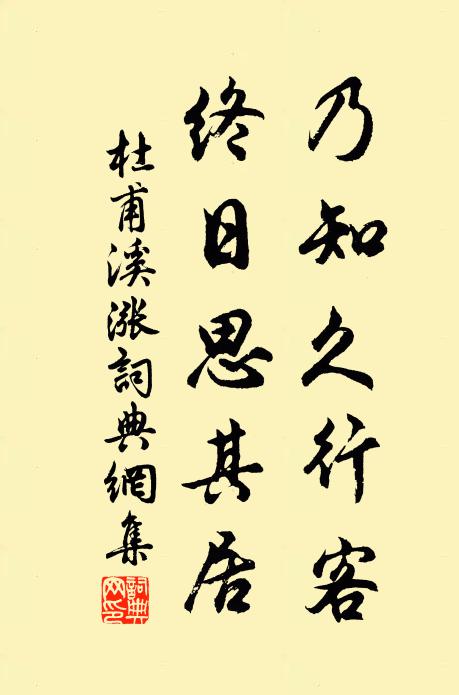 乃知久行客
終日思其居
杜甫溪漲詞典網集
詞典網印